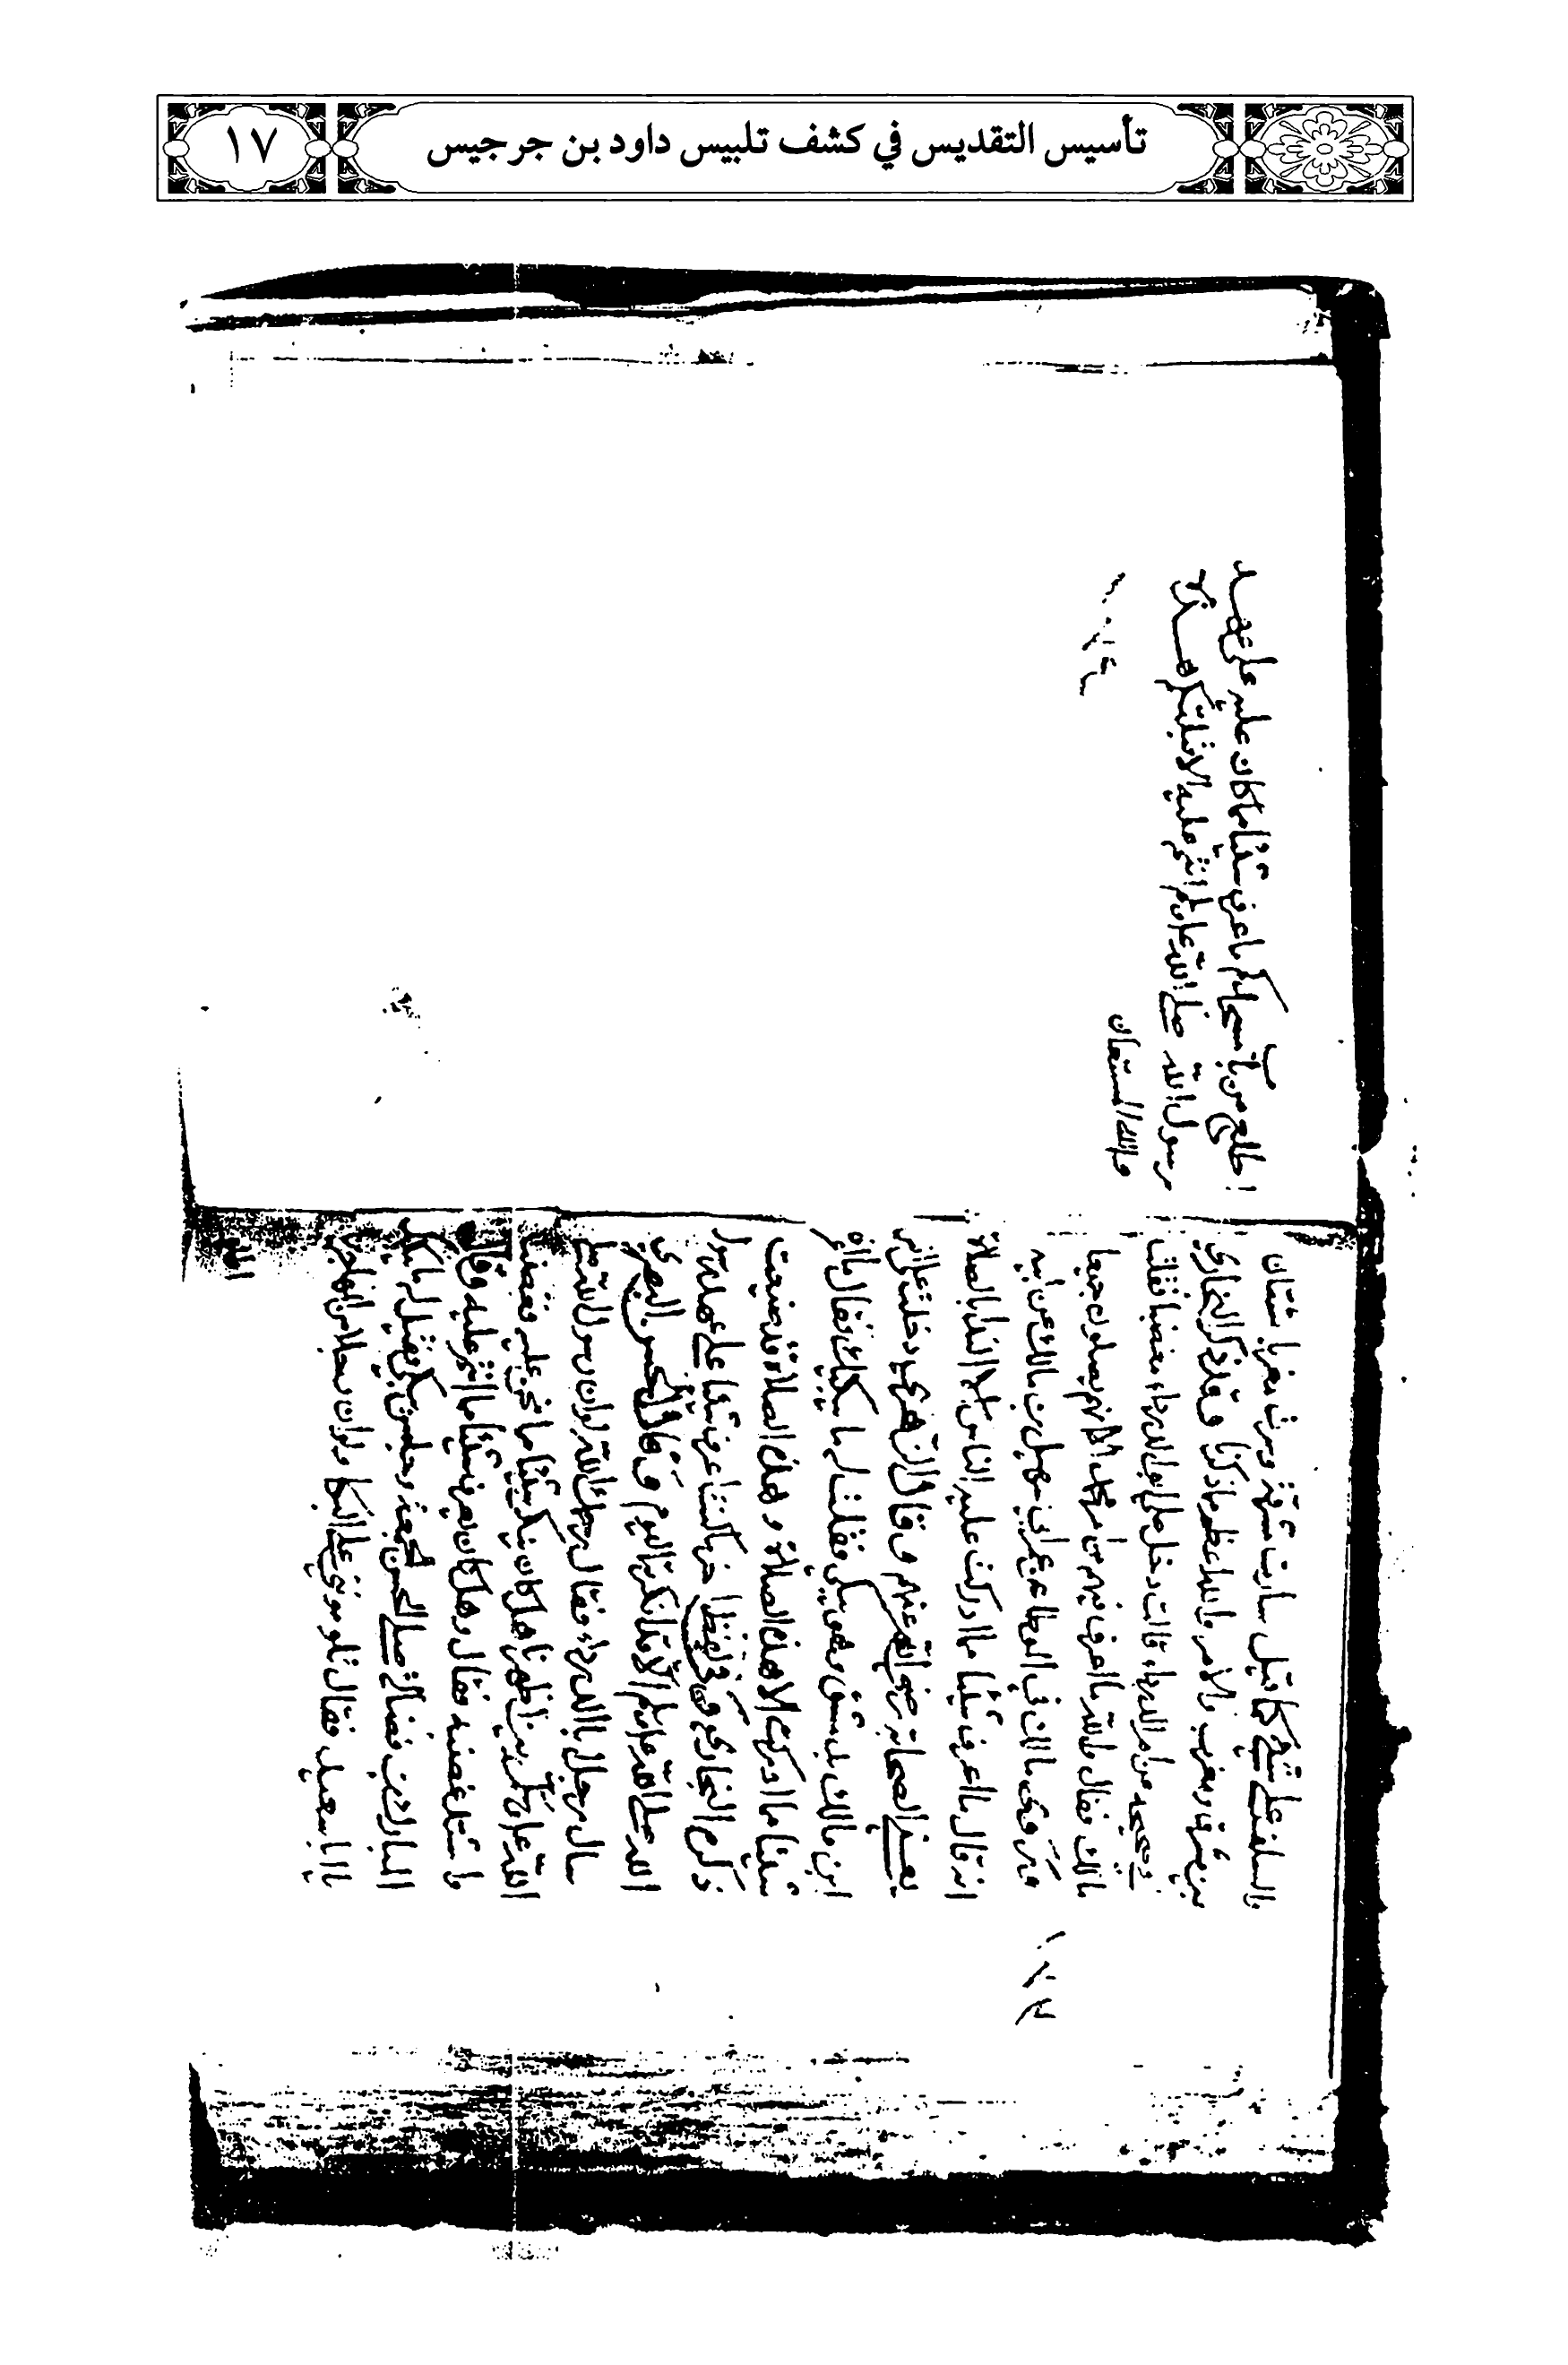 تأسيس التقديس في كشف تلبيس داود بن جرجيس
١٧
بالسلف على شيء كما قيل سارت مشرقة وسرت مغربا شتان
بين مشرق ومغرب والأمر والله أعظم مما ذكرنا وقد ذكر البخاري
في صحيحه عن أم الدرداء قالت دخل علي أبو الدرداء مغضبا فقلت
مالك فقال والله ما أعرف فيهم من أمر محمد إلا أنهم يصلون جميعا
وروى مالك في الموطا عن عمه أبي سهيل بن مالك عن أبيه
انه قال ما أعرف شيئا مما أدركت عليه الناس إلا النداء بالصلاة
يعني الصحابة رضي الله عنهم وقال الزهري دخلت على أنس
ابن مالك بدمشق وهو يبكي فقلت له ما يبكيك فقال ما أعرف
شيئا مما أدركت إلا هذه الصلاة وهذه الصلاة قد ضيعت
ذكره البخاري وفي لفظ آخر ما كنت أعرف شيئا على عهد رسول
الله صلى الله عليه وسلم إلا قد أنكرته اليوم وقال الحسن البصري
سأل رجل أبا الدرداء فقال لو أن رسول الله صلى
الله عليه وسلم بين أظهرنا هل كان ينكر شيئا مما نحن عليه فغضب
واشتد غضبه فقال وهل كان يعرف شيئا مما أنتم عليه وقال
المبارك بن فضالة صلى الحسن الجمعة وجلس يبكي فقيل له ما يبكيك
يا أبا سعيد فقال تلوموني على البكا ولو أن رجلا من المهاجرين
اطلع من باب مسجدكم ما عرف شيئا مما كان عليه على عهد
رسول الله صلى الله عليه وسلم أنتم عليه إلا قبلتكم هذه
والله المستعان